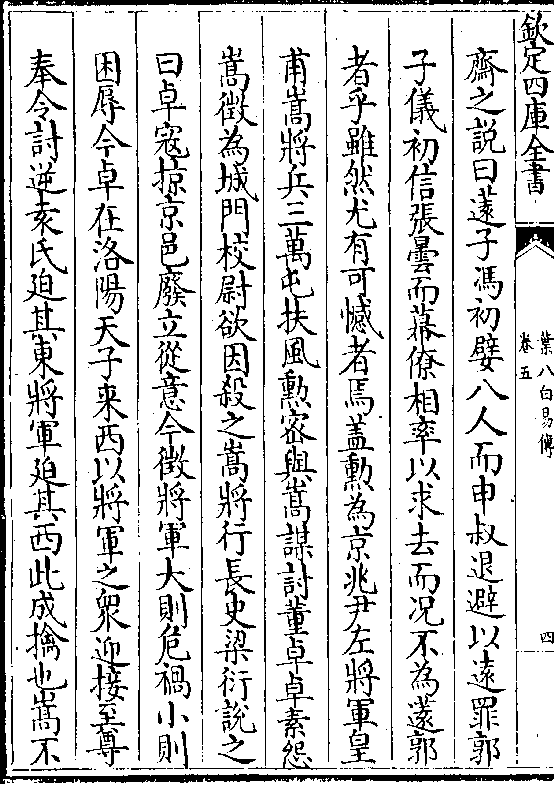 欽定四庫全書
葉八白易傳
卷五
四
齋之說曰薳子馮初嬖八人而申叔退避以遠罪郭
子儀初信張曇而幕僚相率以求去而况不為薳郭
者乎雖然尤有可憾者焉蓋勳為京兆尹左將軍皇
甫嵩將兵三萬屯扶風勲宻與嵩謀討董卓卓素怨
嵩徵為城門校尉欲因殺之嵩將行長史梁衍說之
曰卓寇掠京邑廢立從意今徵將軍大則危禍小則
困辱今卓在洛陽天子来西以將軍之衆迎接至尊
奉令討逆袁氏迫其東將軍迫其西此成擒也嵩不